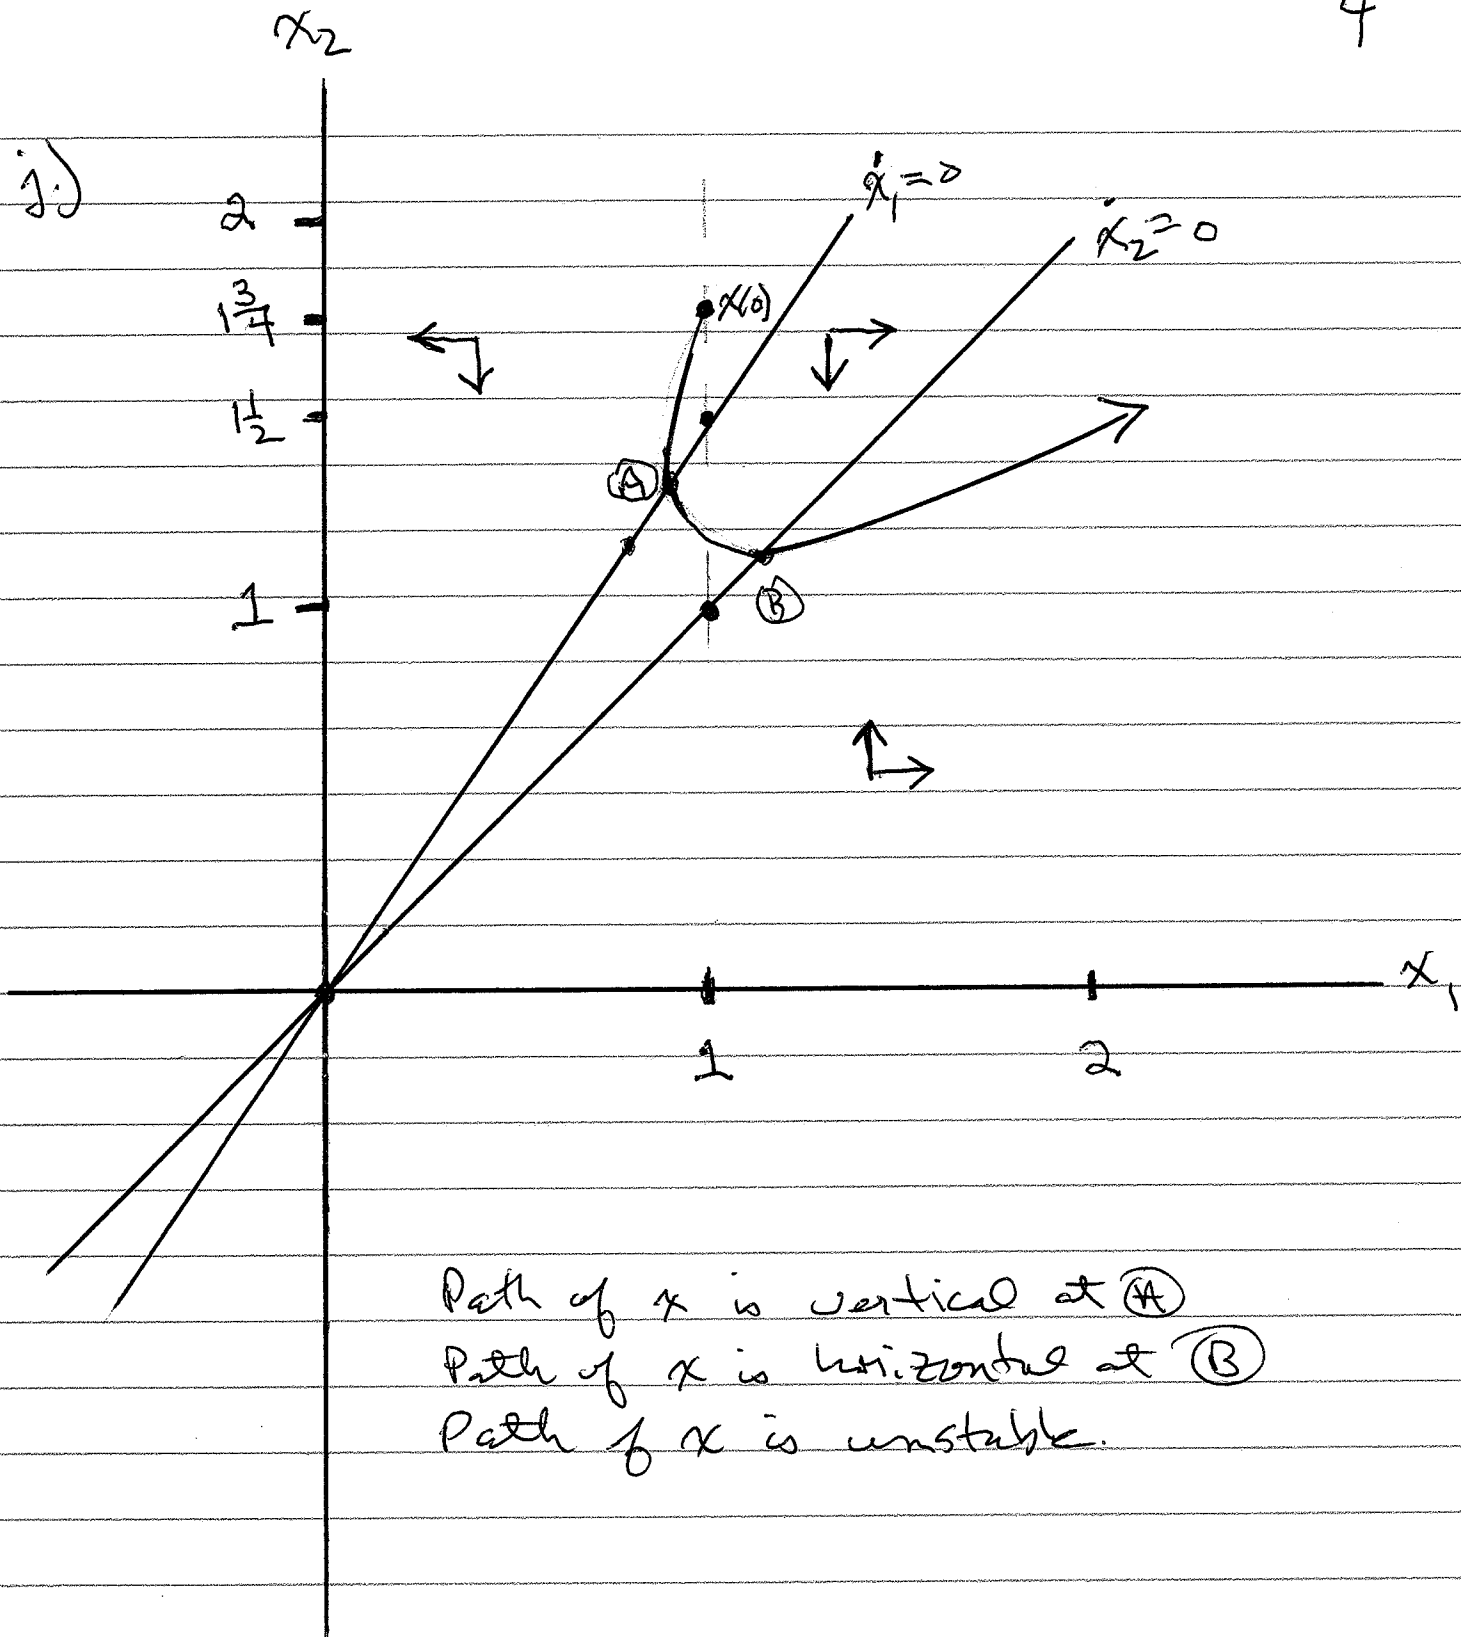 4
x₂
j.)
ẋ₁=0
2
ẋ₂=0
1 3/4
x(0)
1 1/2
A
B
1
x₁
1
2
Path of x is vertical at A
Path of x is horizontal at B
Path of x is unstable.